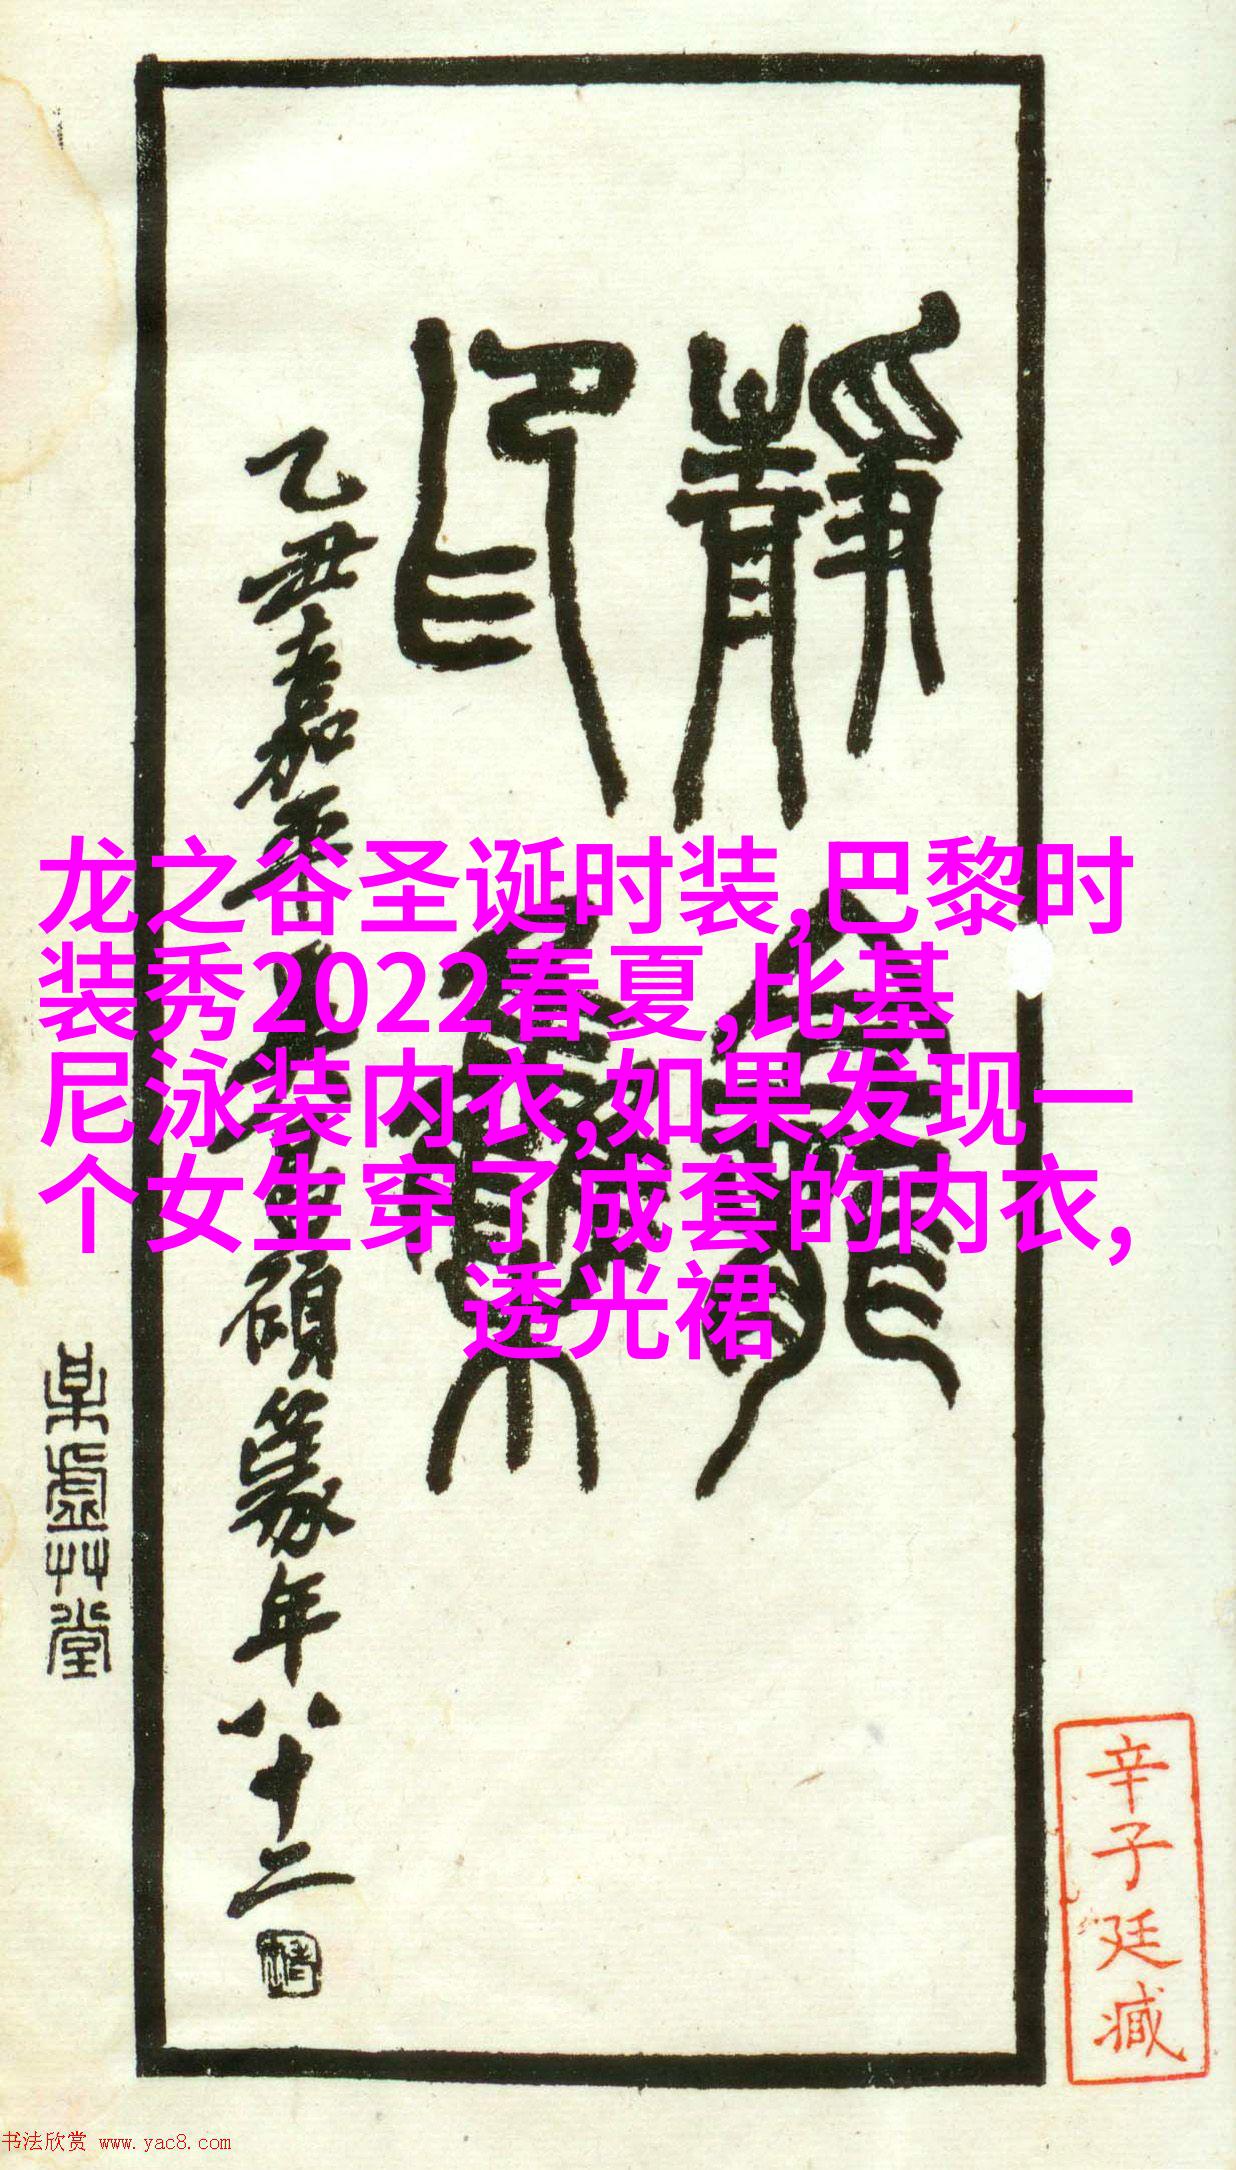 靜龕
印集
乙丑嘉平
碩篆年八十二
某虛艸堂
辛子廷臧
龙之谷圣诞时装,巴黎时
装秀2022春夏,比基
尼泳装内衣,如果发现一
个女生穿了成套的内衣,
透光裙
书法欣赏 www.yac8.com